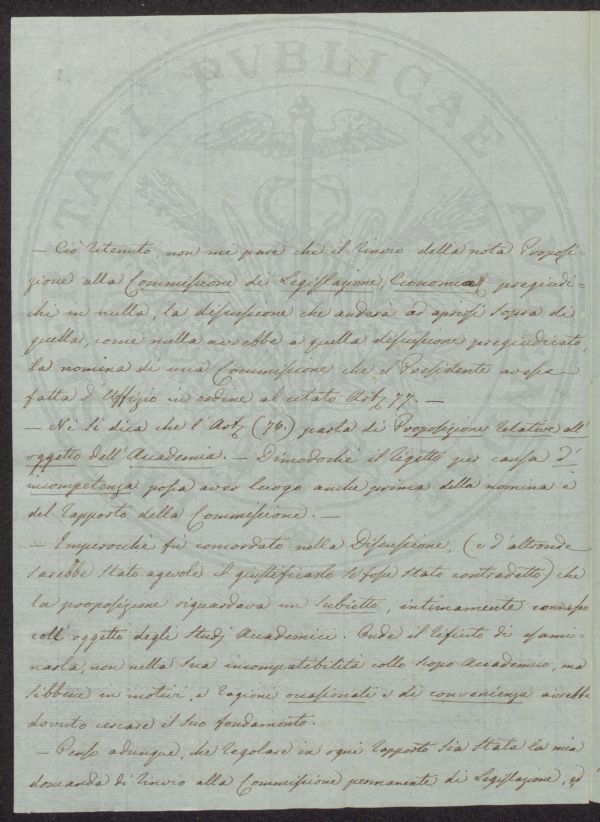 TATI PVBLICAE A
– Ciò ritenuto, non mi pare che il rinvio della nota Proposi=
zione alla Commissione di Legislazione, Economica pregiudi=
chi in nulla, la discussione che andarà ad aprirsi sopra di
quella, come nulla avrebbe a quella discussione pregiudicato,
la nomina di una Commissione che il Presidente avesse
fatta d'Uffizio in ordine al citato Art. 77. –
– Nè si dica che l'Art. (76.) parla di Proposizioni relative all'
oggetto dell'Accademia. – Dimodochè il rigetto per causa d'
incompetenza possa aver luogo anche prima della nomina e
del rapporto della Commissione. –
– Imperocchè fù concordato nella Discussione, (e d'altronde
sarebbe stato agevole il giustificarlo se fosse stato contradetto) che
la proposizione riguardava un subietto, intimamente connesso
coll'oggetto degli Studj Accademici. Onde il rifiuto di esami=
narla, non nella sua incompatibilità collo scopo Accademico, ma
sibbene in motivi, e ragioni occasionali e di convenienza avrebbe
dovuto cercare il suo fondamento.
– Penso adunque, che regolare in ogni rapporto sia stata la mia
domanda di rinvio alla Commissione permanente di Legislazione, ed